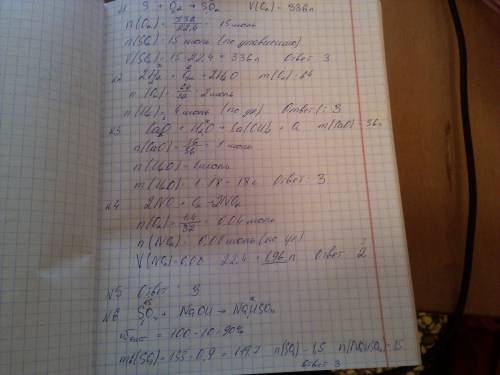 S + O₂ = SO₂ V(O₂) = 336л
n(O₂) = 336/22,4 = 15 моль
n(SO₂) = 15 моль (по уравнению)
V(SO₂) = 15 · 22,4 = 336л Ответ 3
№2 2H₂ + O₂ = 2H₂O m(O₂) = 64
n(O₂) = 64/32 = 2 моль
n(H₂) = 4 моль (по ур) Ответ: 3
№3 CaO + H₂O = Ca(OH)₂ m(CaO) = 56г
n(CaO) = 56/56 = 1 моль
n(H₂O) = 1 моль
m(H₂O) = 1 · 18 = 18г Ответ 3
№4 2NO + O₂ = 2NO₂
n(O₂) = /32 = 0,04 моль
n(NO₂) = 0,08 моль (по ур)
V(NO₂) = 0,08 22,4 = Ответ 2
№5 Ответ : 3
№6 SO₂ + NaOH → NaHSO₃
= 100-10 = 90%
m(SO₂) = 133 · 0,9 = 119,7 n(SO₂) = 1,5 n(NaHSO₃) = 1,5
Ответ 3